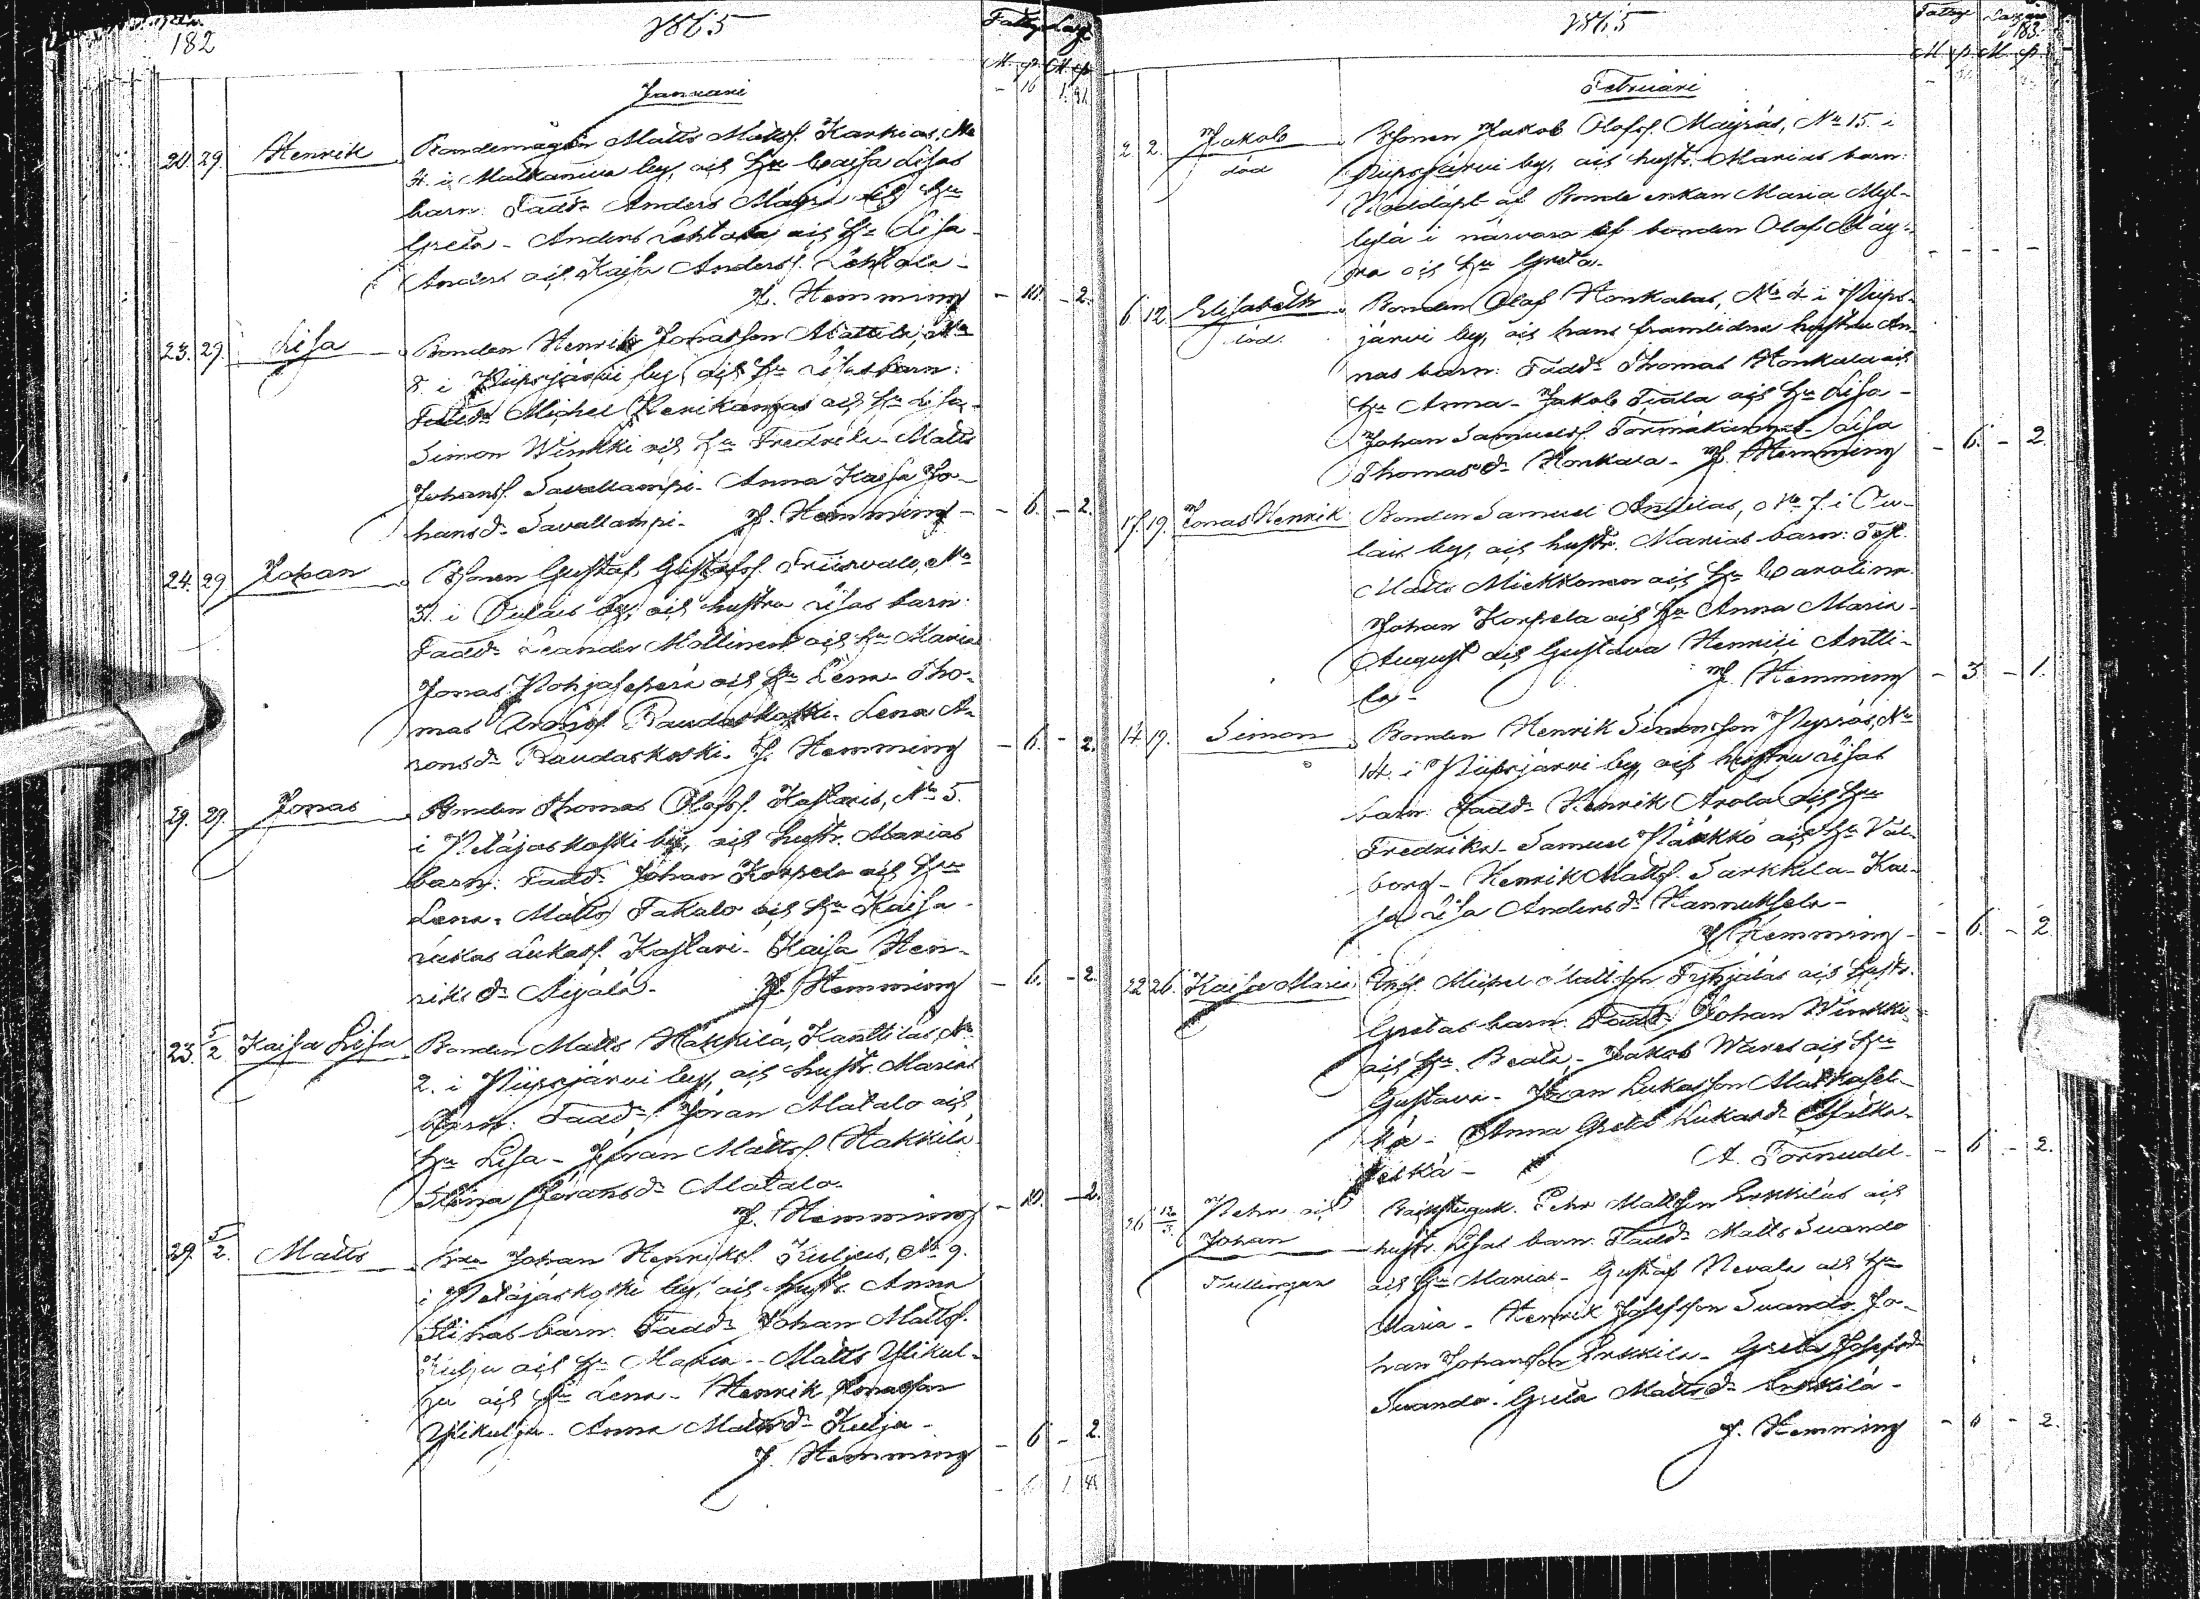 182
1865
Januari
20. 29. Henrik Bondemågen Matts Mattsf. Karkias, No
4. i Matkaniva by, och hu Caisa Lisas
barn: Fadd: Anders Mäyrä och hu
Greta - Anders Lehtola och hu Lisa -
Anders och Kajsa Andersf. Lehtola -
J. Hemming - 10. - 2.
23. 29. Lisa Bonden Henrik Jonasson Mattila, No
8. i Piipsjärvi by, och hu Lisas barn:
Fadd: Michel och hu Lisa -
Simon Winkki och hu Fredrika - Matts
Johansf. Savallampi - Anna Kaisa Jo-
hans dr Savallampi - J. Hemming - - 6. - 2.
24. 29 Johan Gustaf Gustafsf. No
31. i Oulais by, och hustru Lisas barn:
Fadd: Leander Mollinen och hu Maria
Jonas Pohjasepera och hu Lena - Tho-
mas Aronsf. Raudaskoski - Lena A-
rons dr Raudaskoski. J. Hemming - 6. - 2.
29. 29. Jonas Bonden Thomas Olofsf. Kastaris, No 5.
i Petäjaskoski by, och hustr. Marias
barn: Fadd: Johan Korpela och hu
Lena - Matts Takalo och hu Kaisa -
Lukas Lukasf. Kastari - Kaisa Hen-
riks dr J. Hemming - 6. - 2.
23. 5/2. Kaisa Lisa Bonden Matts Häkkilä, Kanttilas, No
2. i Piipsjärvi by, och hustr. Marias
barn: Fadd: Jöran Matalo och
hu Lisa - Jöran Mattsf. Hakkilä
Stina Jörans dr Matalo.
J. Hemming - 10. - 2.
29. 5/2. Matts Johan Henriksf. Kuljus, No 9.
i Petäjäskoski by, och hustr. Anna
Stinas barn: Fadd: Johan Mattsf.
Kulju och hu Maria - Matts Ylikul-
ju och hu Lena - Henrik Jonasson
Ylikulju - Anna Matts dr Kulja -
J. Hemming - 6 - 2.
1865
183.
Februari
2. 2. Jakob Jakob Olofsf. Mäyräs, No 15. i
död Piipsjärvi by, och hustr. Marias barn:
Nöddöpt af Bonde enkan Maria Myl-
lylä i närvaro af bonden Olof Mäy-
rä och hu Greta. - - - -
6 12 Elisabeth Bonden Olof Honkalas, No 4 i Piips-
död. järvi by, och hans framlidna hustru An-
nas barn: Fadd: Thomas Honkala och
hu Anna - Jakob Tiala och hu Lisa -
Johan Samuelsf. Törmäkangas - Lisa
Thomas dr Honkala - J. Hemming - 6. - 2.
17. 19. Jonas Henrik Bonden Samuel Anttilas, No 7. i Ou-
lais by, och hustr. Marias barn: Test.
Matts Miekkonen och hu Carolina.
Johan Korpela och hu Anna Maria -
August och Gustava Henrici Antti-
la - J. Hemming - 3 - 1.
14 19. Simon Bonden Henrik Simonsson Pyrräs, No
14. i Piipsjärvi by, och hustru Lisas
barn: Fadd: Henrik Arola och hu
Fredrika - Samuel Näkkö och hu Val-
borg - Henrik Mattsf. Sarkkila - Kai-
sa Lisa Anders dr Hannuksela -
J. Hemming - - 6. - 2
22 26. Kaisa Maria Michel Mattsson och hustr.
Gretas barn: Fadd: Johan Winkki
och hu Beata - Jakob Wares och hu
Gustava - Jöran Lukasson Matkasel-
kä - Anna Greta Lukas dr Matka-
selkä - A. Törnudd. - 6 - 2.
26 12/3. Pehr och Pehr Mattsson Erkkiläs och
Johan hustr. Lisas barn: Fadd: Matts Suando
Tvillingar och hu Maria - Gustaf Nevala och hu
Maria - Henrik Josefsson Suando - Jo-
han Johansson Erkkilä - Greta Josefs dr
Suando - Greta Matts dr Erkkilä -
J. Hemming - 6 - 2.